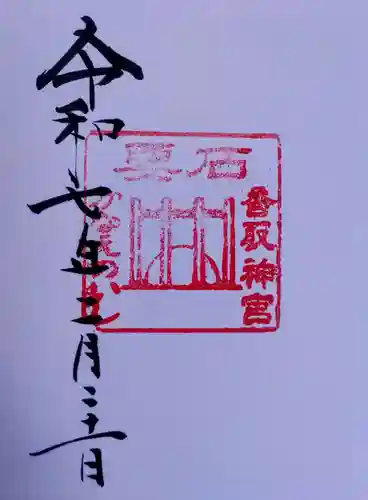 香取神宮
要石
令和七年二月二十一日